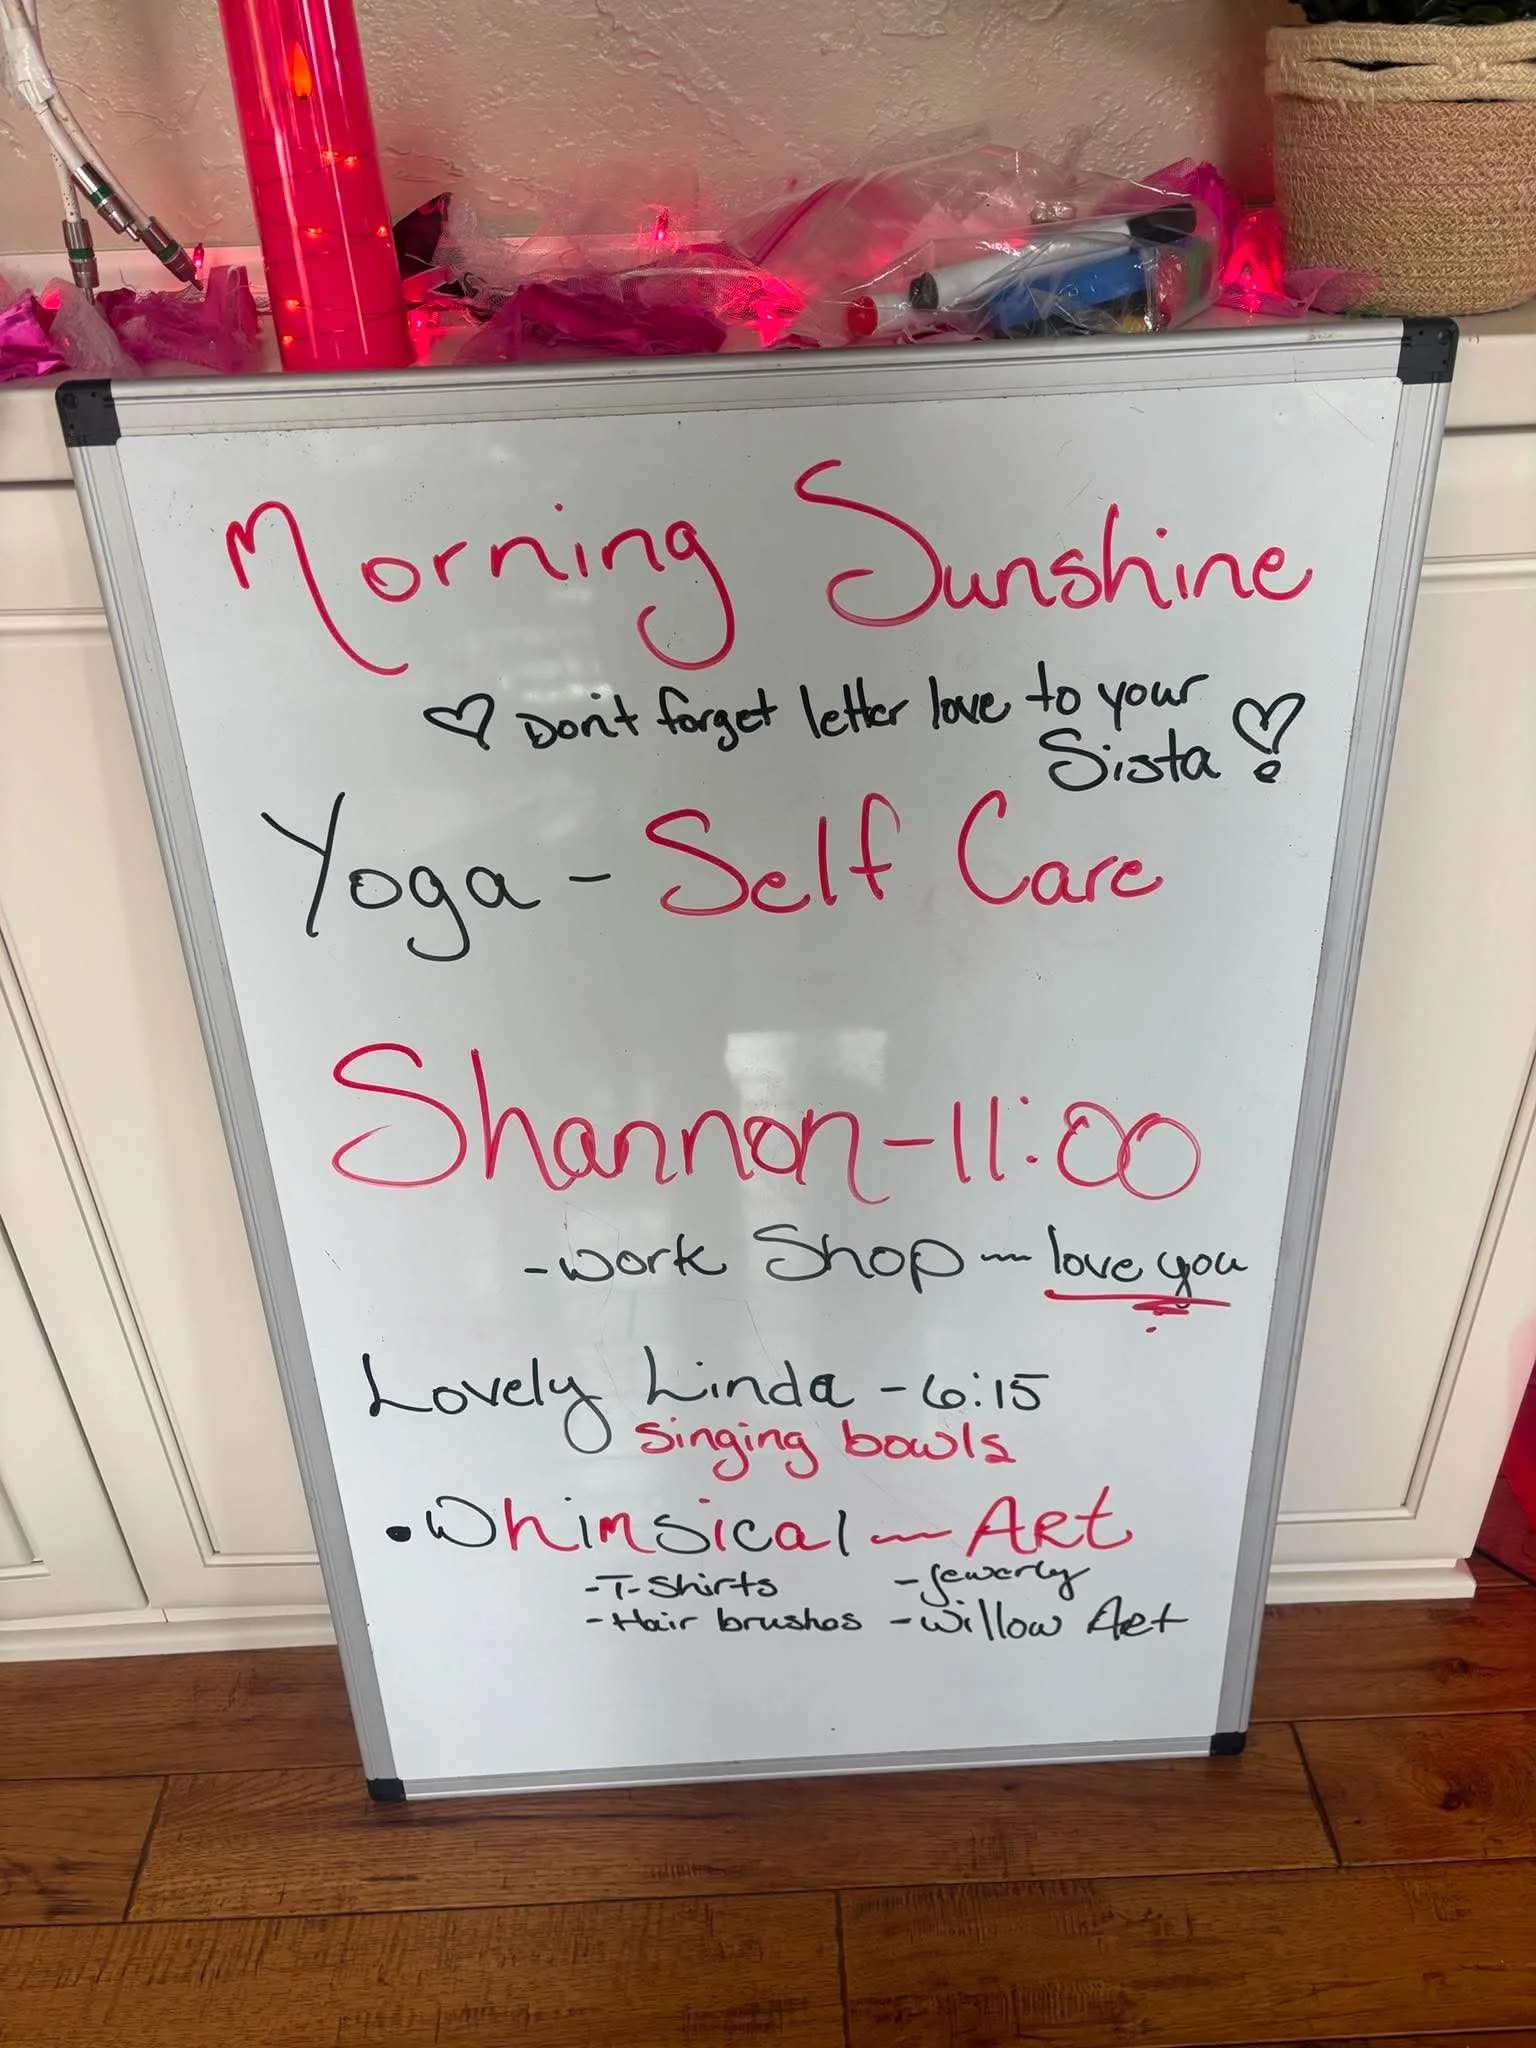 Morning Sunshine
♡ Don't forget letter love to your
Sista ♡!
Yoga - Self Care
Shannon - 11:00
- work Shop ~ love you
Lovely Linda - 6:15
singing bowls
• Whimsical ~ Art
- T-Shirts - Jewerly
- Hair brushes - Willow Art